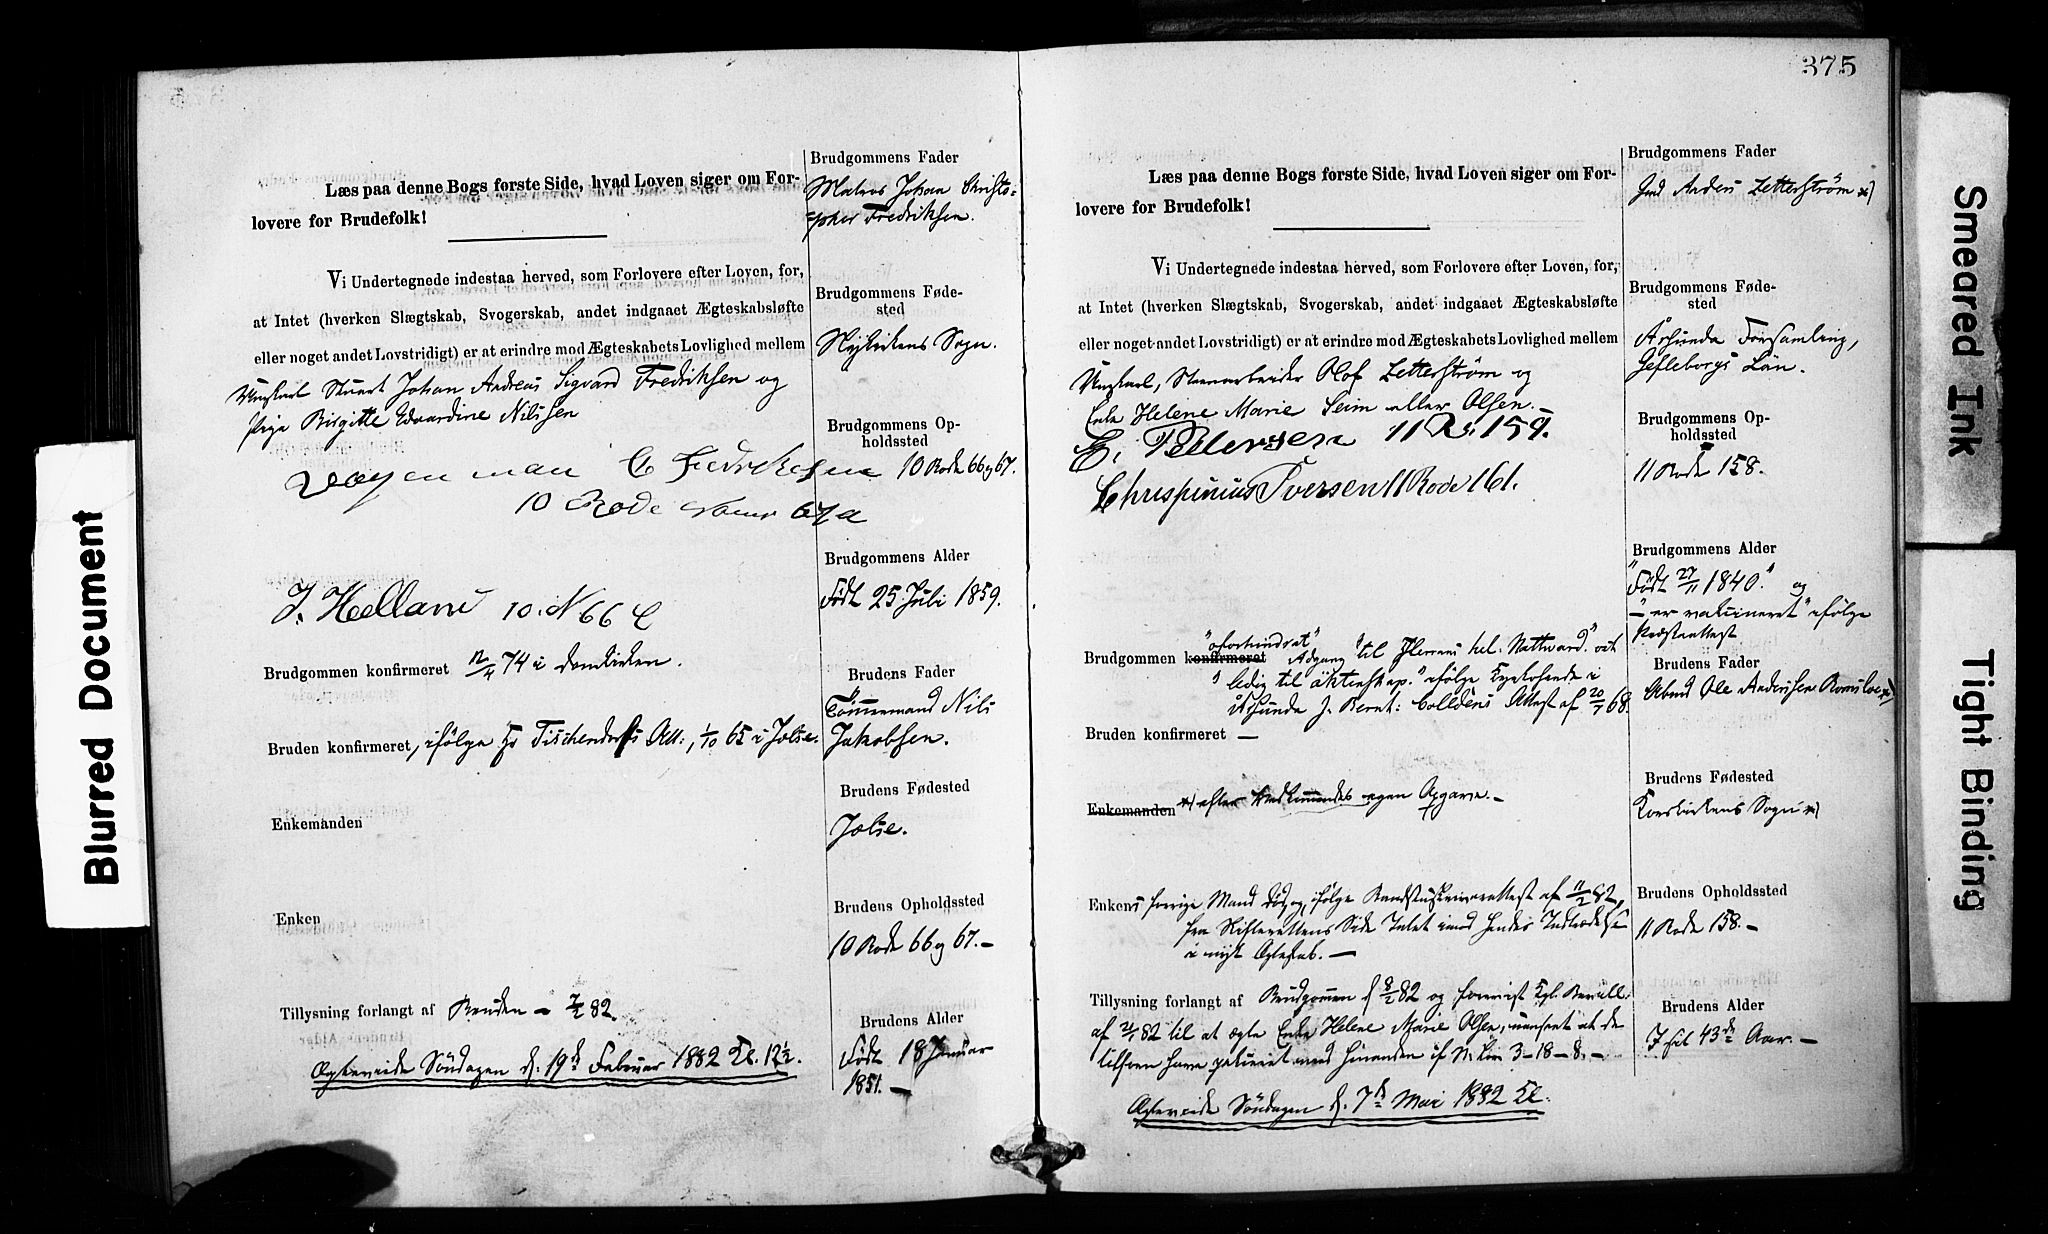 375
Læs paa denne Bogs første Side, hvad Loven siger om For-
lovere for Brudefolk!
Vi Undertegnede indestaa herved, som Forlovere efter Loven, for,
at Intet (hverken Slægtskab, Svogerskab, andet indgaaet Ægteskabsløfte
eller noget andet Lovstridigt) er at erindre mod Ægteskabets Lovlighed mellem
Ungkarl Stuert Johan Andreas Sigvard Fredriksen og
Pige Birgitte Edvardine Nilssen
Vognman C Fredriksen
10 Rode Nomr 67 a
J. Helland 10. N 66 C
Brudgommen konfirmeret 12/4 74 i Domkirken.
Bruden konfirmeret, ifølge Tischendorfs Att:, 1/10 65 i Jølse.
Enkemanden
Enken
Tillysning forlangt af Bruden - 7/2 82.
Ægtevide Søndagen d. 19de Februar 1882 Kl. 12½.
Brudgommens Fader
Matros Johan Christo-
pher Fredriksen.
Brudgommens Føde-
sted
Nykirkens Sogn.
Brudgommens Op-
holdssted
10 Rode 66 og 67.
Brudgommens Alder
Født 25 Juli 1859.
Brudens Fader
Tømmermand Nils
Jakobsen.
Brudens Fødested
Jølse.
Brudens Opholdssted
10 Rode 66 og 67. -
Brudens Alder
Født 18 Januar
1851. -
Læs paa denne Bogs første Side, hvad Loven siger om For-
lovere for Brudefolk!
Vi Undertegnede indestaa herved, som Forlovere efter Loven, for,
at Intet (hverken Slægtskab, Svogerskab, andet indgaaet Ægteskabsløfte
eller noget andet Lovstridigt) er at erindre mod Ægteskabets Lovlighed mellem
Ungkarl, Stenarbeider Olof Zetterström og
Enke Helene Marie Seim eller Olsen. -
E. Pettersen 11 R. 159.
Chrispinius Iversen 11 Rode 161.
"oforhindrat"
Brudgommen konfirmeret Adgang "til Herrens hel. Nattvard." och
"ledig til äktenskap." ifølge
Årsunda J. Bernt: Colldéns Attest af 20/7 68.
Bruden konfirmeret -
Enkemanden *) efter Vedkommendes egen Opgave. -
Enkens forrige Mand død og, ifølge Skifteattest af 11/2 82,
fra Skifterettens Side Intet imod hendes Indtrædelse
i nyt Ægteskab. -
Tillysning forlangt af Brudgommen d 8/2 82 og forevist Kgl. Bevill:
af 21/4 82 til at ægte Enke Helene Marie Olsen, uanseet at de
tilforn have været med hinanden if N. Lov 3-18-8. -
Ægtevide Søndagen d. 7de Mai 1882 Kl.
Brudgommens Fader
Gmd Anders Zetterström *)
Brudgommens Føde-
sted
Årsunda Församling,
Gefleborgs Län.
Brudgommens Op-
holdssted
11 Rode 158.
Brudgommens Alder
"Født 27/11 1840." og
"- er vakcineret" ifølge
Præsteattest
Brudens Fader
Arbmd Ole Andersen *)
Brudens Fødested
Korskirkens Sogn *)
Brudens Opholdssted
11 Rode 158. -
Brudens Alder
I sit 43de Aar. -
Blurred Document
Smeared Ink
Tight Binding